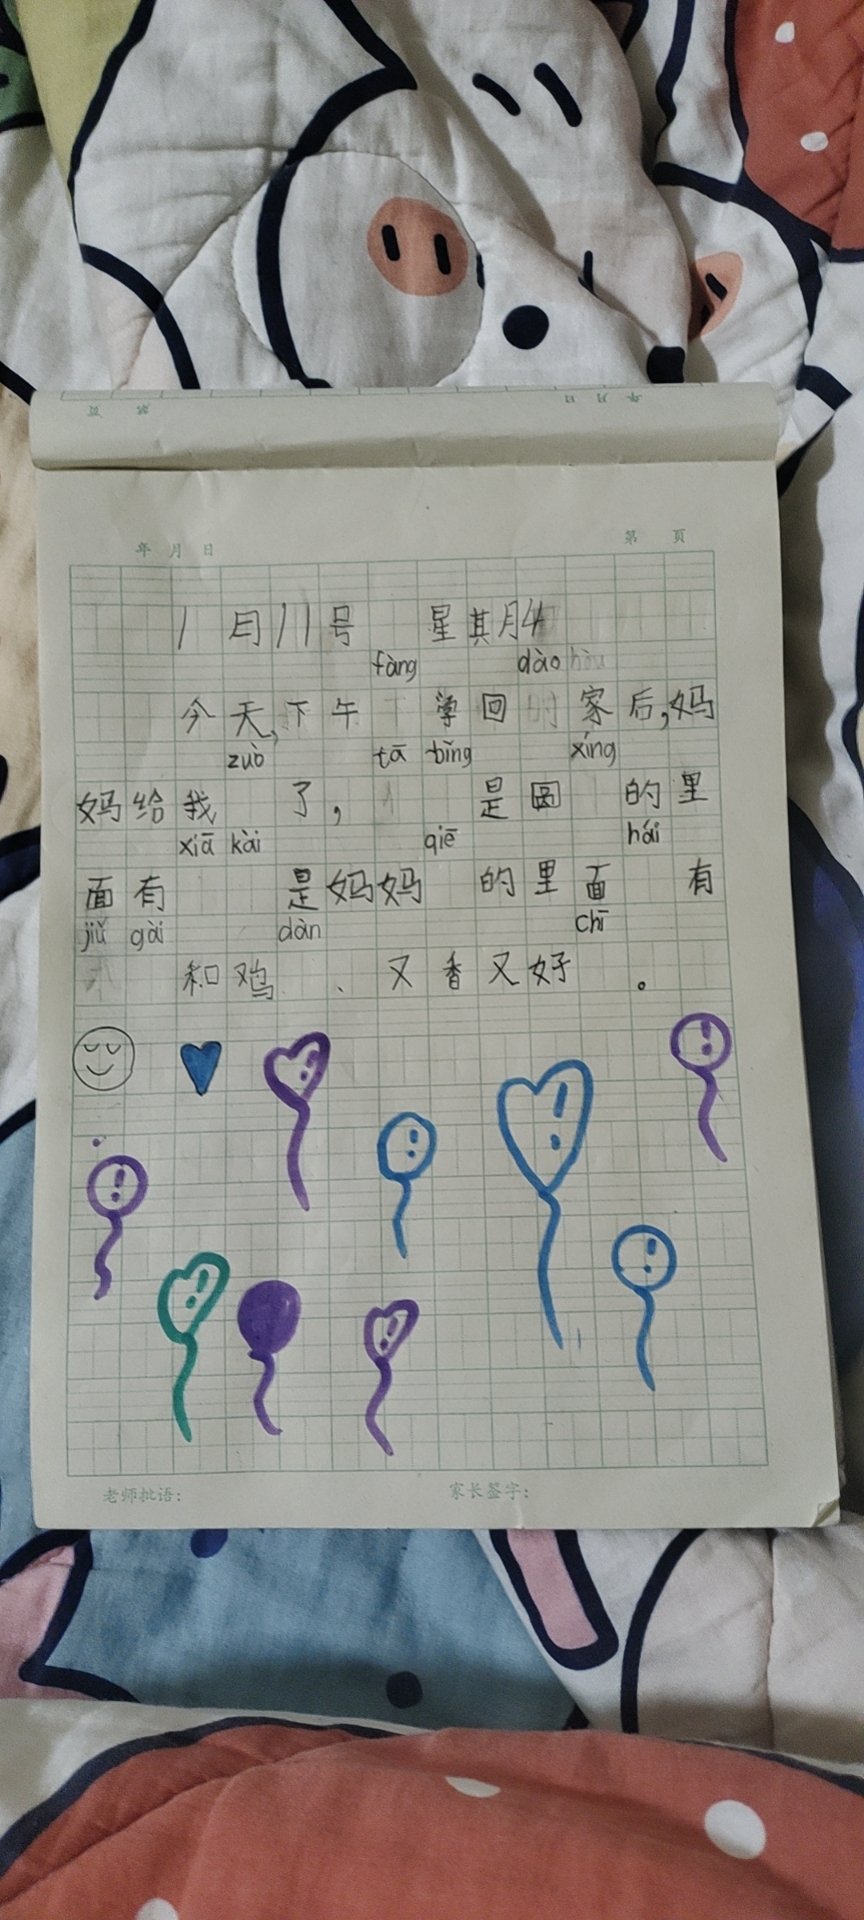 年 月 日 第 页
1月11号 星其月4
fàng dào
今天,下午 学回 家后,妈
zuò tā bǐng xíng
妈给我 了, 是圆 的里
xiā kài qiē hái
面有 是妈妈 的里面 有
jiǔ gài dàn chī
和鸡 、又香又好 。
老师批语: 家长签字: